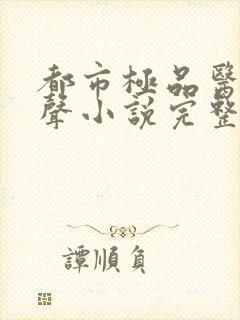 都市極品醫
聲小說完整
譚順負